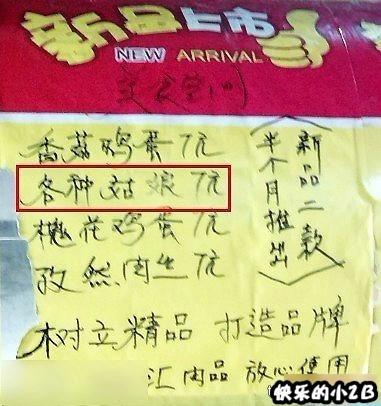 新品上市
NEW ARRIVAL
美食空间
香菇鸡蛋7元
各种姑娘7元
槐花鸡蛋7元
孜然肉丝7元
新品二款
半个月推出
树立精品 打造品牌
汇肉品 放心使用
快乐的小2B